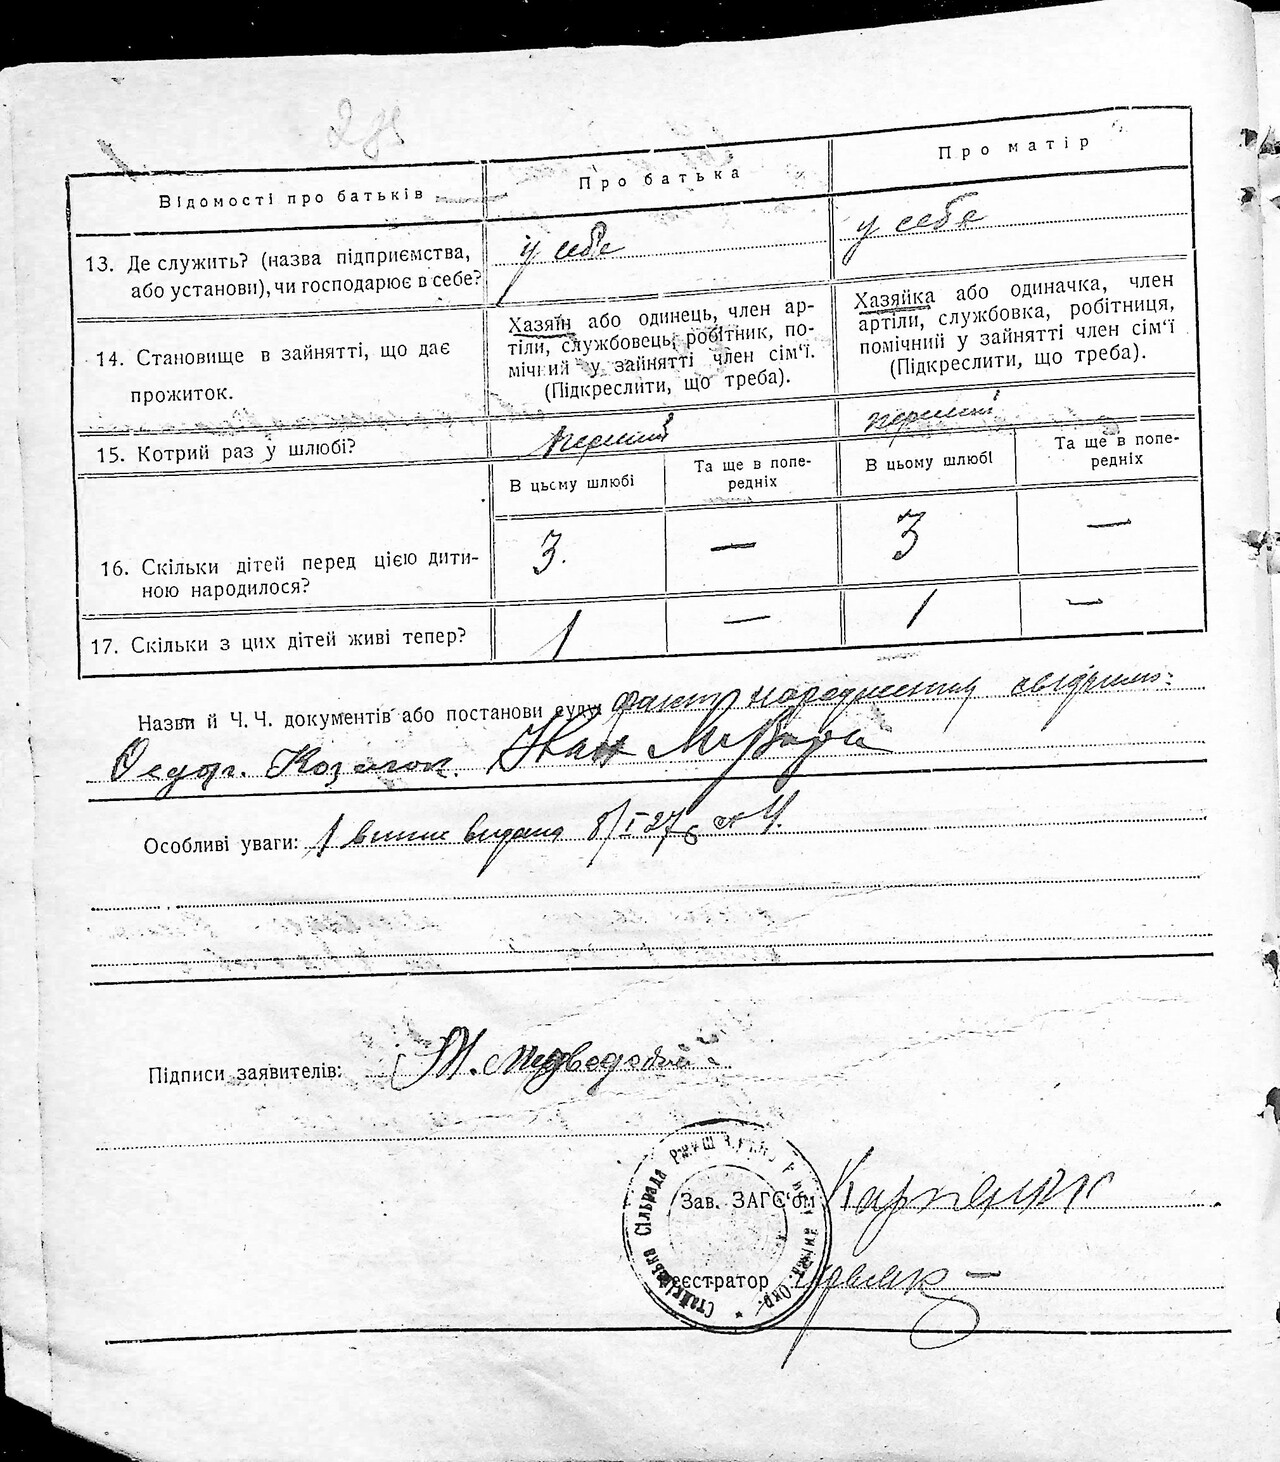 Відомості про батьків
Про батька
Про матір
13. Де служить? (назва підприємства,
або установи), чи господарює в себе?
у себе
у себе
14. Становище в зайнятті, що дає
прожиток.
Хазяїн або одинець, член ар-
тіли, службовець, робітник, по-
мічний у зайнятті член сім'ї.
(Підкреслити, що треба).
Хазяйка або одиначка, член
артіли, службовка, робітниця,
помічний у зайнятті член сім'ї
(Підкреслити, що треба).
15. Котрий раз у шлюбі?
перший
перший
В цьому шлюбі
Та ще в попе-
редніх
В цьому шлюбі
Та ще в попе-
редніх
16. Скільки дітей перед цією дити-
ною народилося?
3. — 3 —
17. Скільки з цих дітей живі тепер?
1 — 1 —
Назви й Ч. Ч. документів або постанови суду: факт народження
Козачок Іван
Особливі уваги: видана 8/I 27
Підписи заявителів:
Зав. ЗАГС'ом Карпенко
Реєстратор
Стайківська Сільрада Ржищ
Окр.